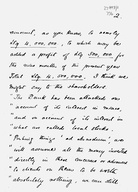 2
amount, as you know, to nearly
£Eg 4,000,000, to which may be
added a profit of £Eg 500,000 for
the nine months of the present year
Total £Eg 4,500,000. I think we
might say to the shareholders
"The Bank has been attacked on
account of its interest in
and on account of its interest in
what are called local stocks
"Public things" and "
will assume all the money invested
directly in these concerns or advances
to clients on them to be worth
absolutely nothing, our own debt